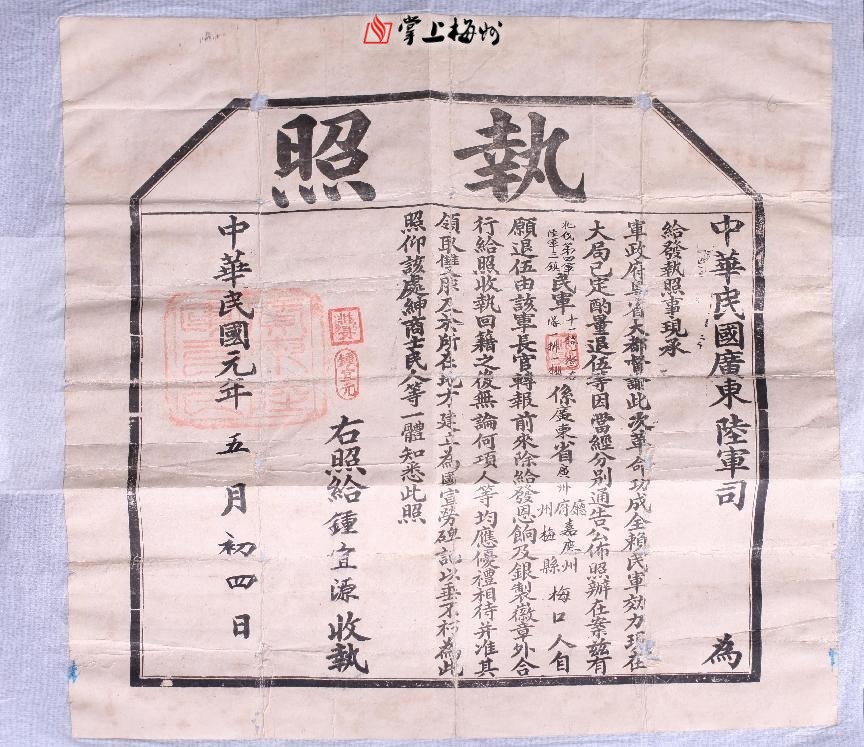 掌上梅州
執照
中華民國廣東陸軍司 為
給發執照事現承
軍政府 省大都督諭此次革命功成全賴民軍効力現在
大局已定酌量退伍等因當經分別通告公佈照辦在案茲有
北伐第四軍陸軍二鎮民軍 十 排一棚 係廣東省廣州府廳嘉應州州梅縣梅口人自
願退伍由該軍長官轉報前來除給發恩餉及銀製徽章外合
行給照收執回籍之後無論何項人等均應優禮相待并准其
領取雙 及於所在地方建立為國宣勞碑記以垂不朽為此
照仰該處紳商士民人等一體知悉此照
右照給鍾宜源收執
中華民國元年五月初四日